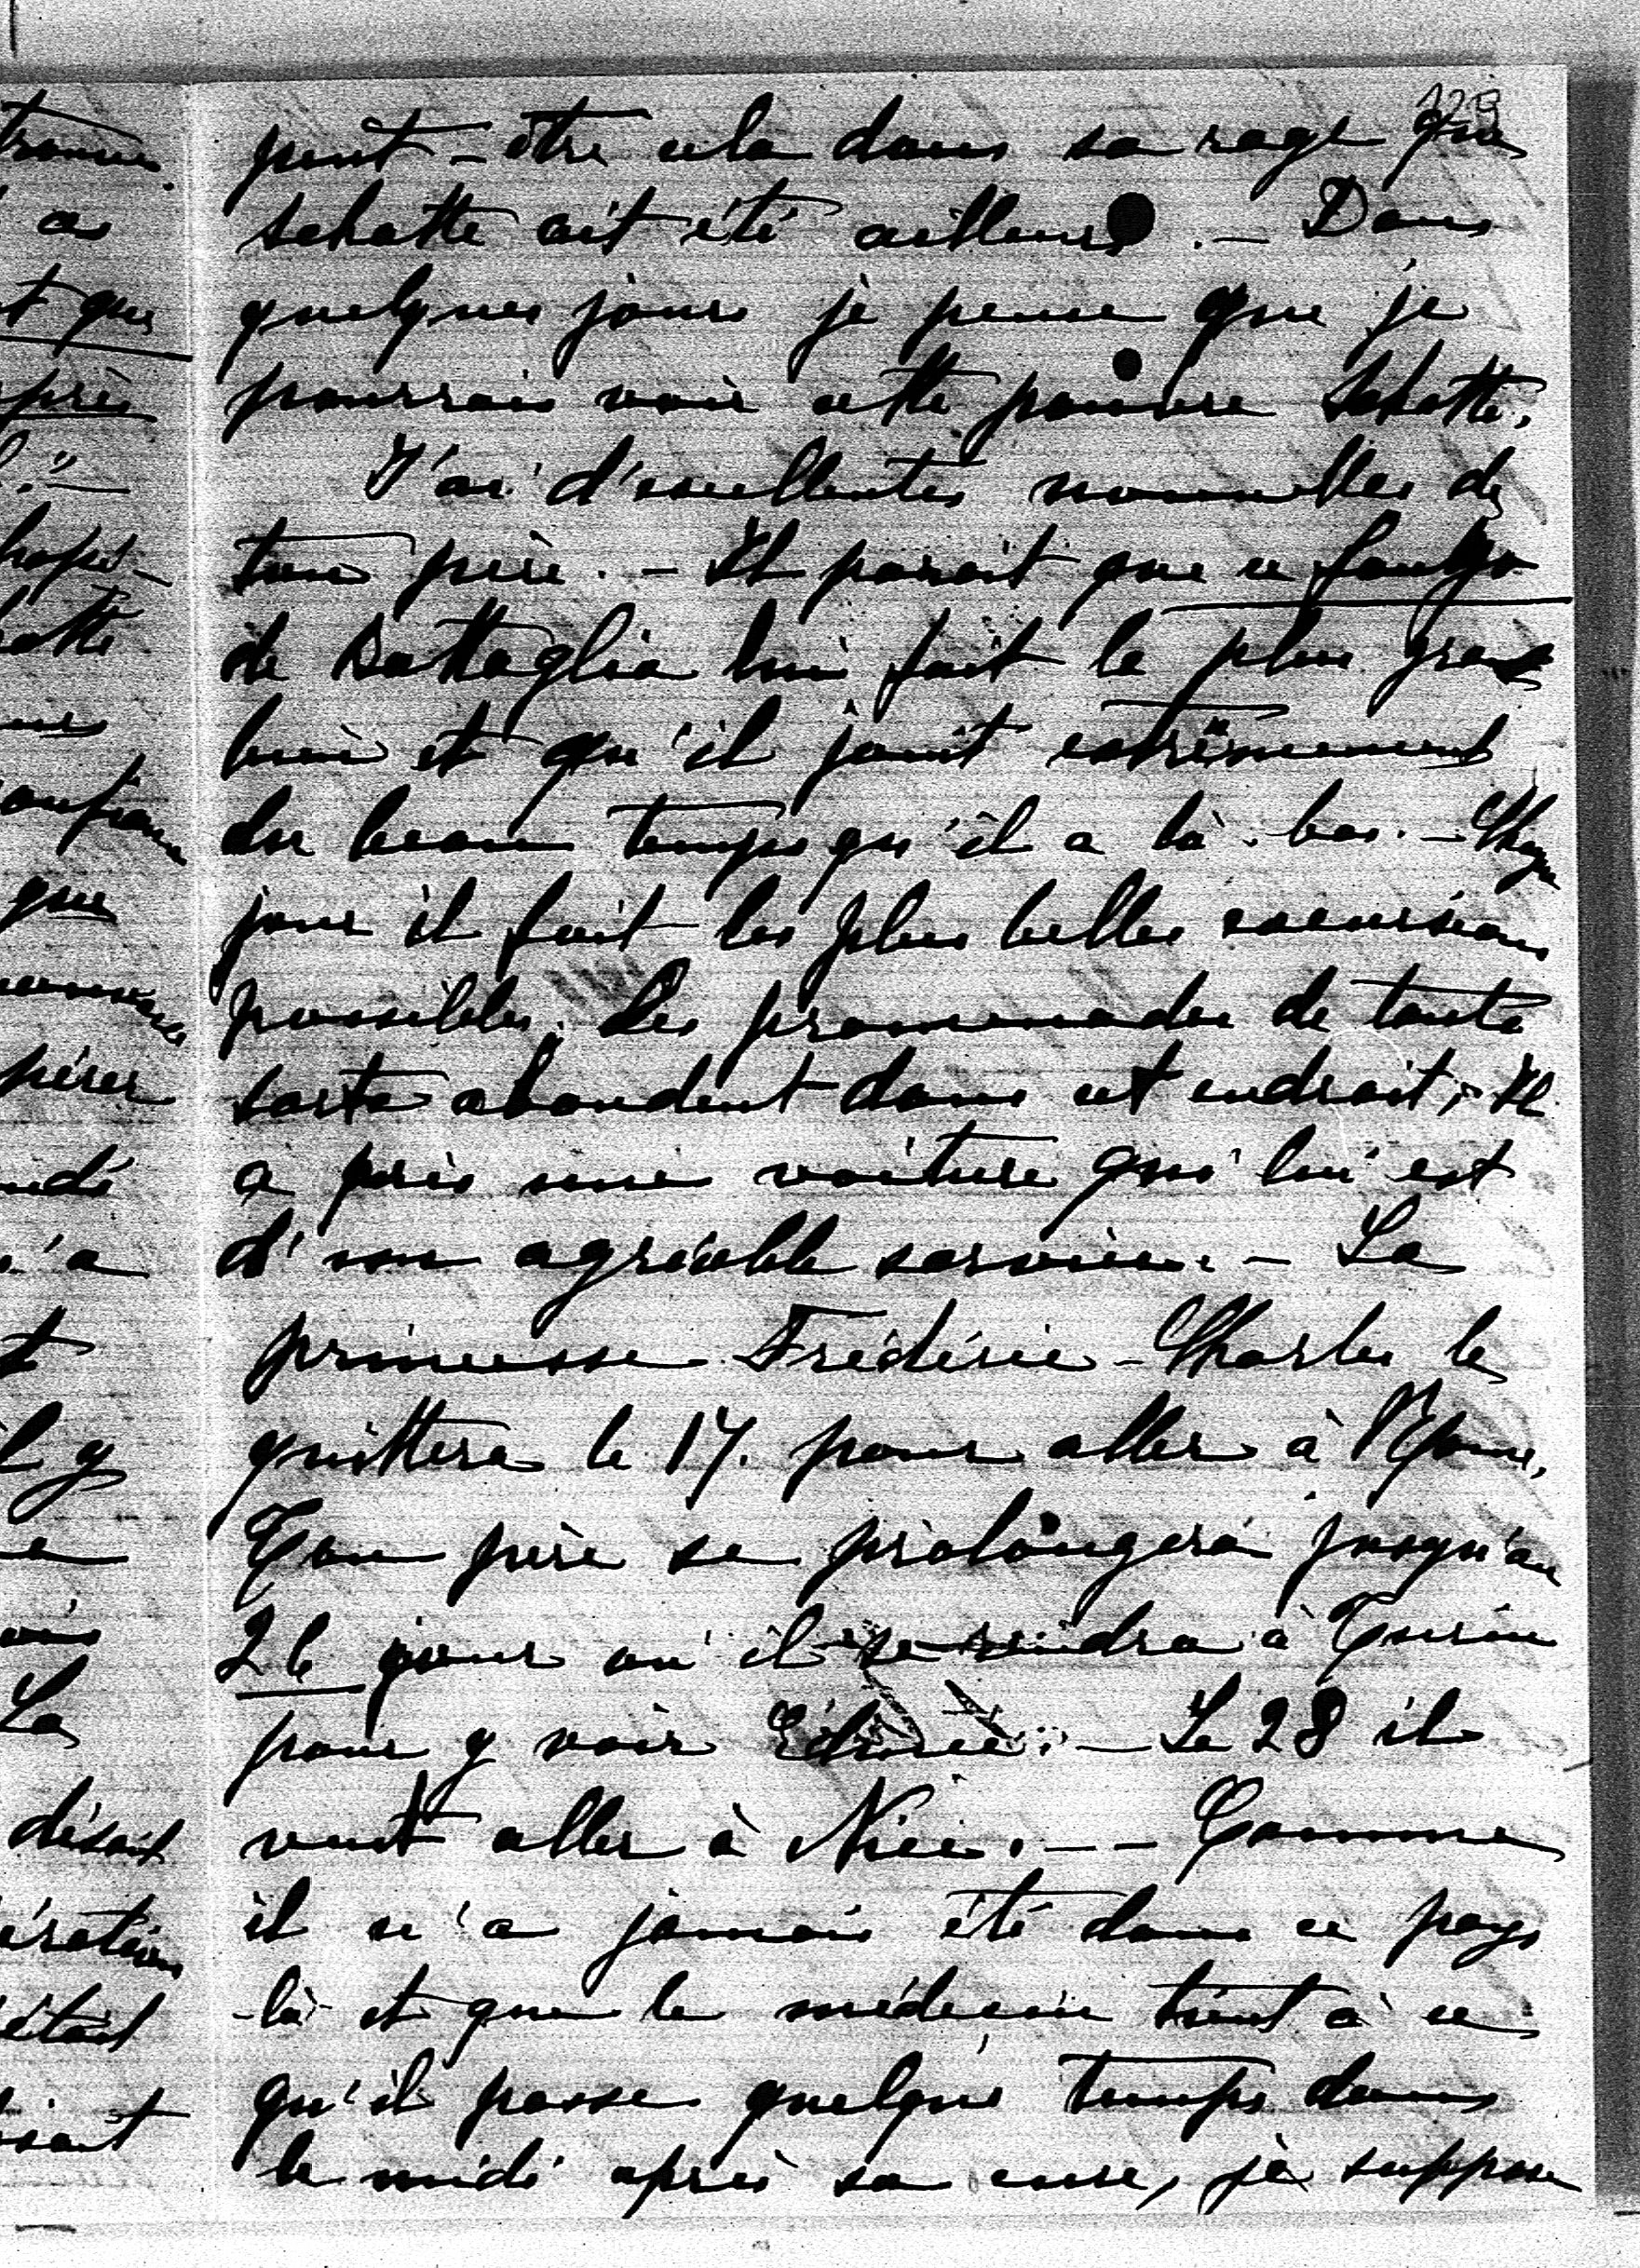 123
peut-être cela dans sa rage que
Schatte ait été ailleurs. — Dans
quelques jours je pense que je
pourrais voir cette pauvre Schatte.
J'ai d'excellentes nouvelles de
ton père. — Il parait que ce fango
de Battaglia lui fait le plus grand
bien et qu'il jouit extrêmement
du beau temps qu'il a là-bas. — Chaque
jour il fait les plus belles excursions
possibles. Les promenades de toute
sorte abondent dans cet endroit; Il
a pris une voiture qui lui est
d'un agréable service. — La
princesse Frédéric-Charles le
quittera le 17. pour aller à Rome.
Ton père se prolongera jusqu'au
26 jour où il se rendra à Turin
pour y voir — Le 28 il
veut aller à Nice. — — Comme
il n'a jamais été dans ce pays
-là et que le médecin tient à ce
qu'il passe quelque temps dans
le midi après sa cure, je suppose
a
t que
près
hatte
que
pérer
n'a
t
il y
La
disait
était